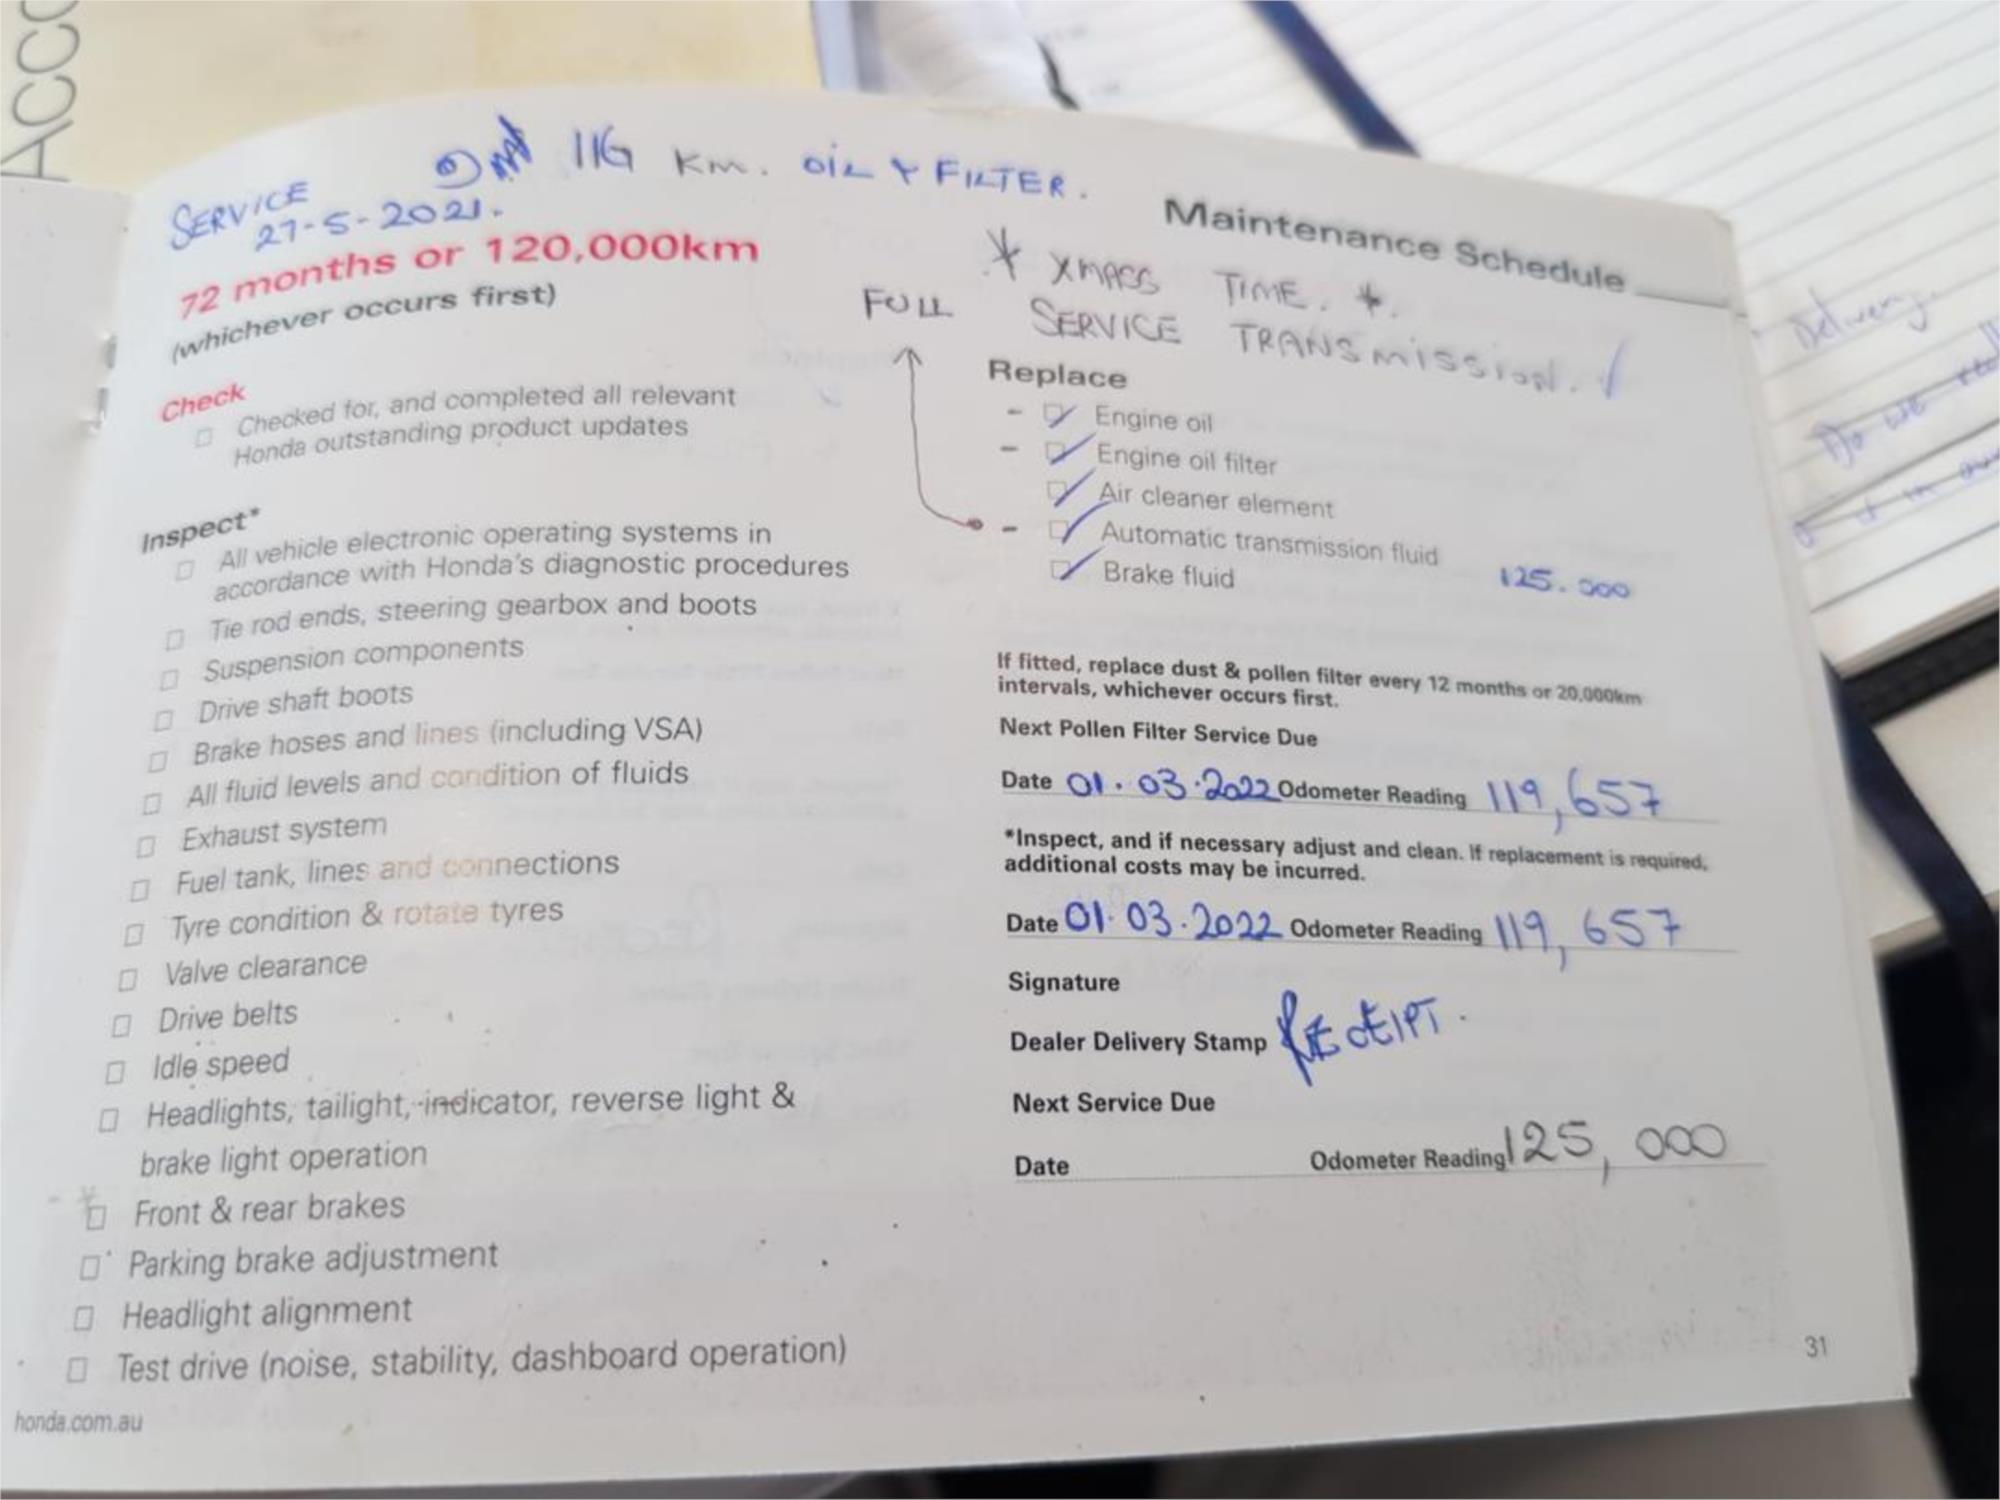 ACCO
SERVICE 116 Km. OIL & FILTER.
27-5-2021.
72 months or 120,000km
(whichever occurs first)
Check
Checked for, and completed all relevant
Honda outstanding product updates
Inspect*
All vehicle electronic operating systems in
accordance with Honda's diagnostic procedures
Tie rod ends, steering gearbox and boots
Suspension components
Drive shaft boots
Brake hoses and lines (including VSA)
All fluid levels and condition of fluids
Exhaust system
Fuel tank, lines and connections
Tyre condition & rotate tyres
Valve clearance
Drive belts
Idle speed
Headlights, tailight, indicator, reverse light &
brake light operation
Front & rear brakes
Parking brake adjustment
Headlight alignment
Test drive (noise, stability, dashboard operation)
honda.com.au
Maintenance Schedule
* XMASS TIME. *.
FULL SERVICE TRANSMISSION. ✓
Replace
- Engine oil
- Engine oil filter
Air cleaner element
- Automatic transmission fluid
Brake fluid 125.000
If fitted, replace dust & pollen filter every 12 months or 20,000km
intervals, whichever occurs first.
Next Pollen Filter Service Due
Date 01.03.2022 Odometer Reading 119,657
*Inspect, and if necessary adjust and clean. If replacement is required,
additional costs may be incurred.
Date 01.03.2022 Odometer Reading 119,657
Signature
Dealer Delivery Stamp RECEIPT.
Next Service Due
Date Odometer Reading 125,000
31
Delivery.